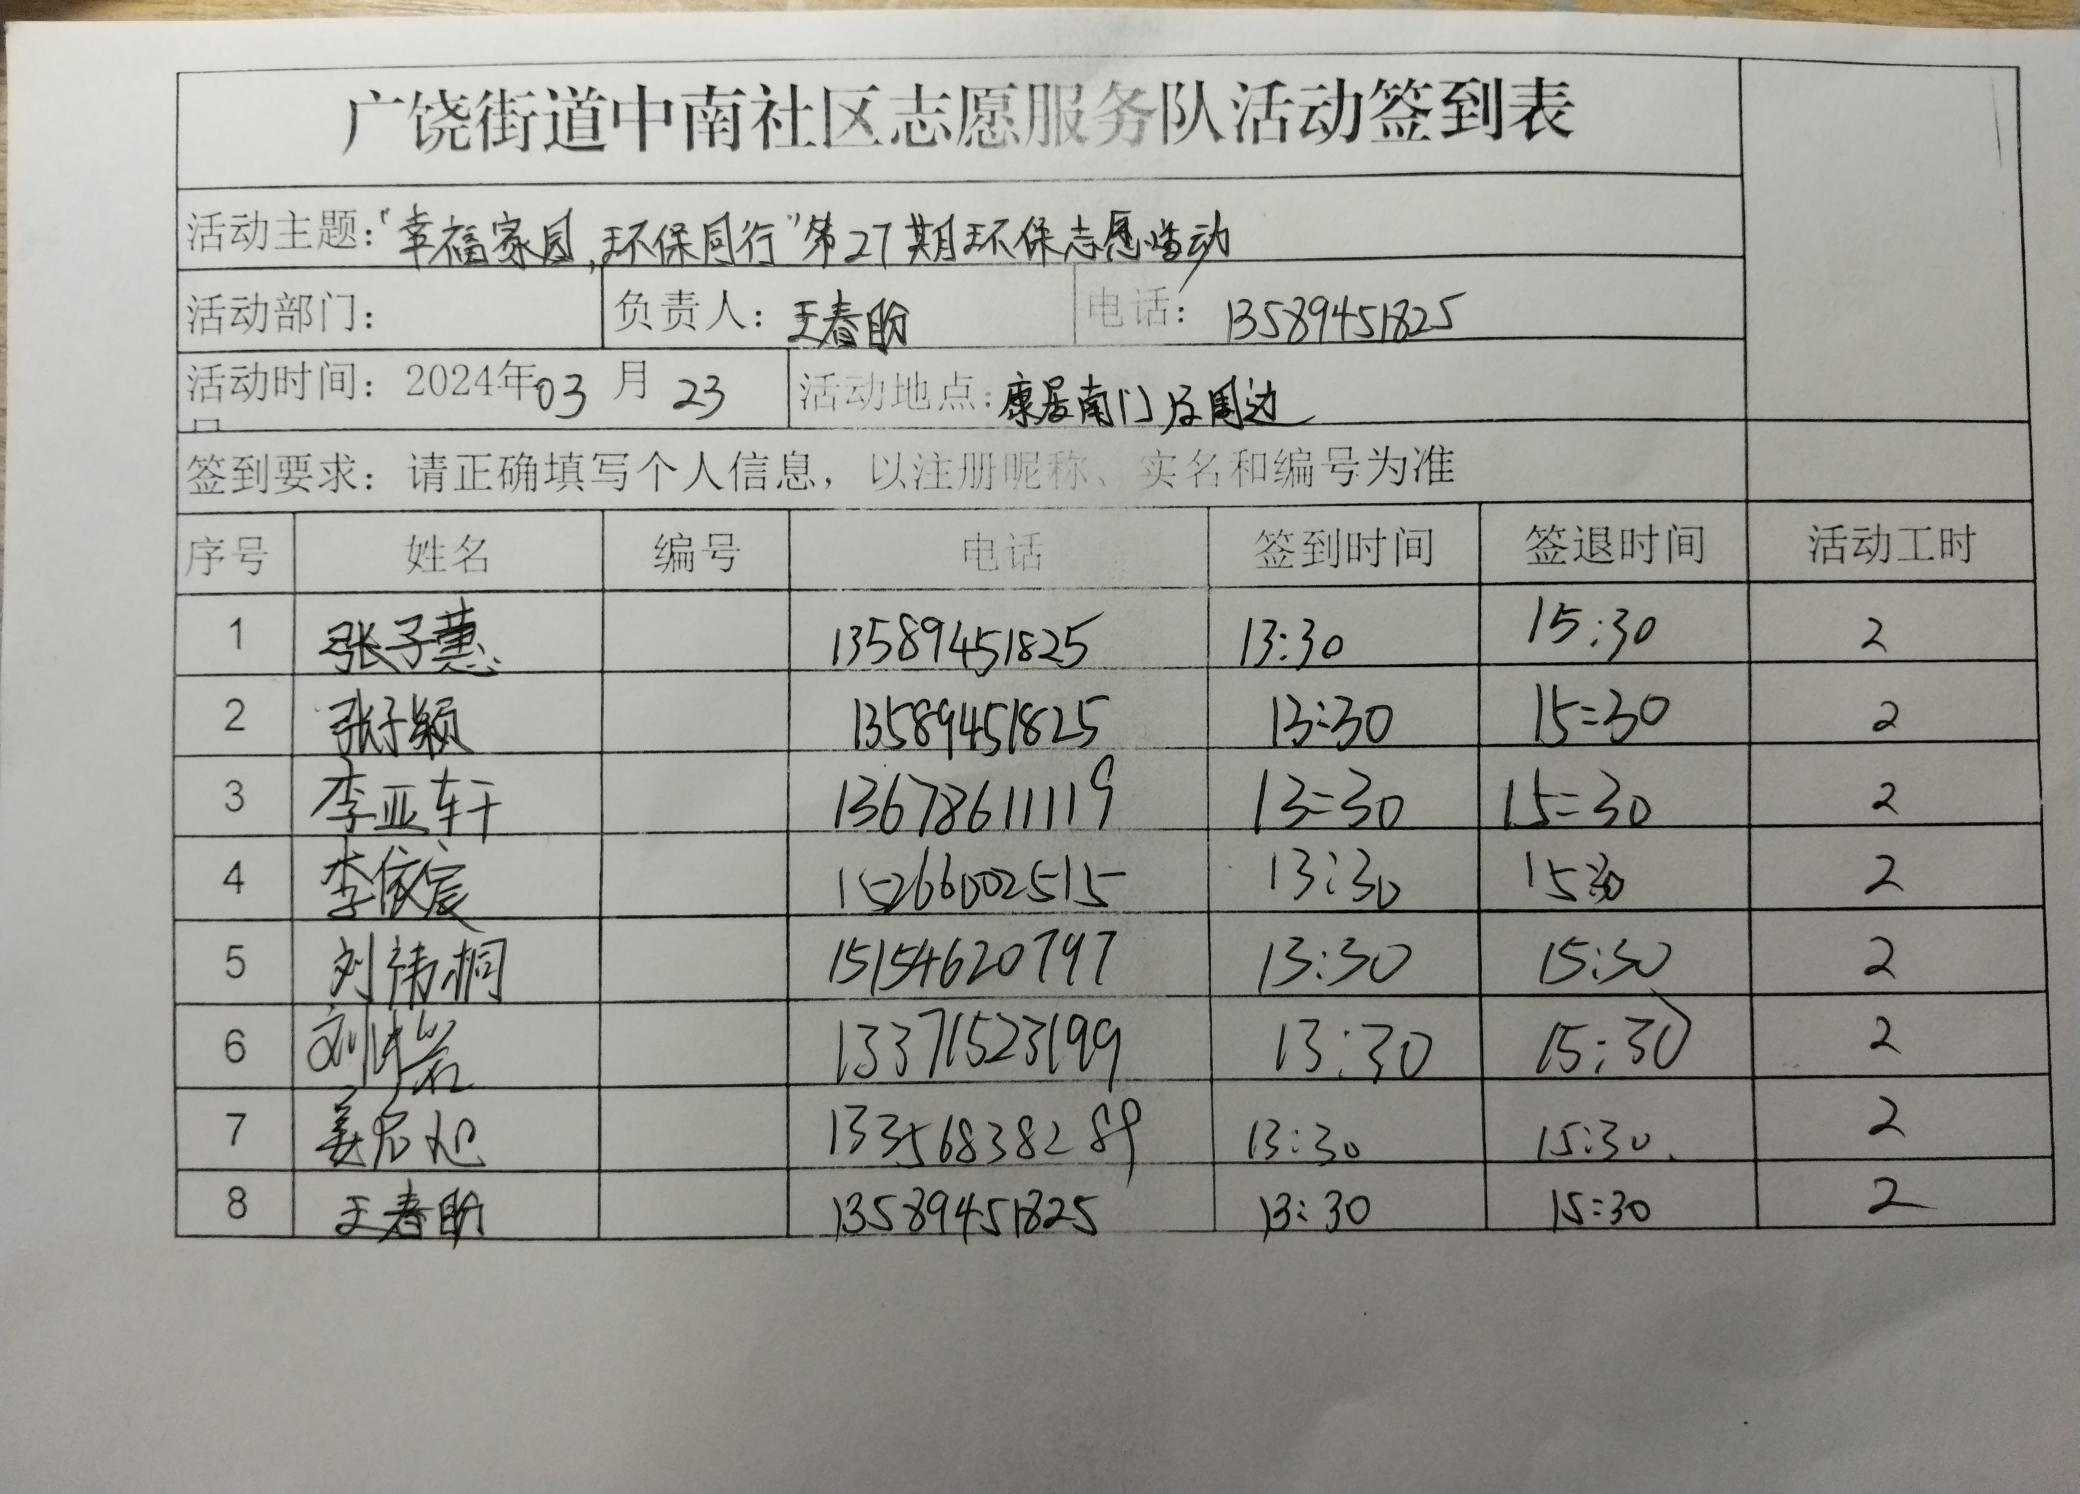 广饶街道中南社区志愿服务队活动签到表
活动主题:“幸福家园,环保同行”第27期环保志愿活动
活动部门: 负责人: 王春盼 电话: 13589451825
活动时间: 2024年03月23 活动地点: 康居南门及周边
签到要求: 请正确填写个人信息, 以注册昵称、实名和编号为准
序号 姓名 编号 电话 签到时间 签退时间 活动工时
1 张子蕙 13589451825 13:30 15:30 2
2 张子颖 13589451825 13:30 15:30 2
3 李亚轩 13678611119 13:30 15:30 2
4 李依宸 15266002515 13:30 15:30 2
5 刘祎桐 15154620797 13:30 15:30 2
6 刘 岩 13371523199 13:30 15:30 2
7 姜 旭 13356838289 13:30 15:30. 2
8 王春盼 13589451825 13:30 15:30 2